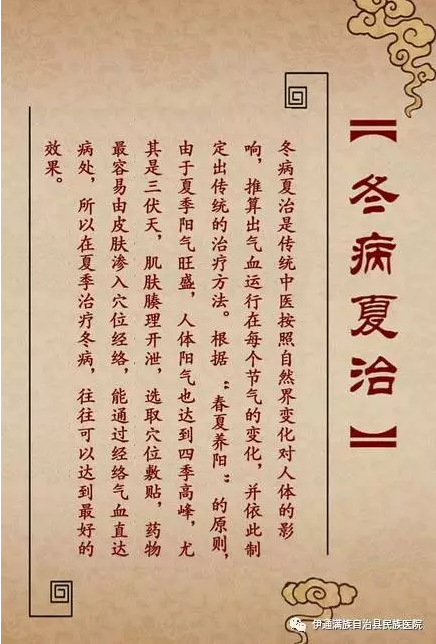 【冬病夏治】
冬病夏治是传统中医按照自然界变化对人体的影
响，推算出气血运行在每个节气的变化，并依此制
定出传统的治疗方法。根据“春夏养阳”的原则，
由于夏季阳气旺盛，人体阳气也达到四季高峰，尤
其是三伏天，肌肤腠理开泄，选取穴位敷贴，药物
最容易由皮肤渗入穴位经络，能通过经络气血直达
病处，所以在夏季治疗冬病，往往可以达到最好的
效果。
伊通满族自治县民族医院